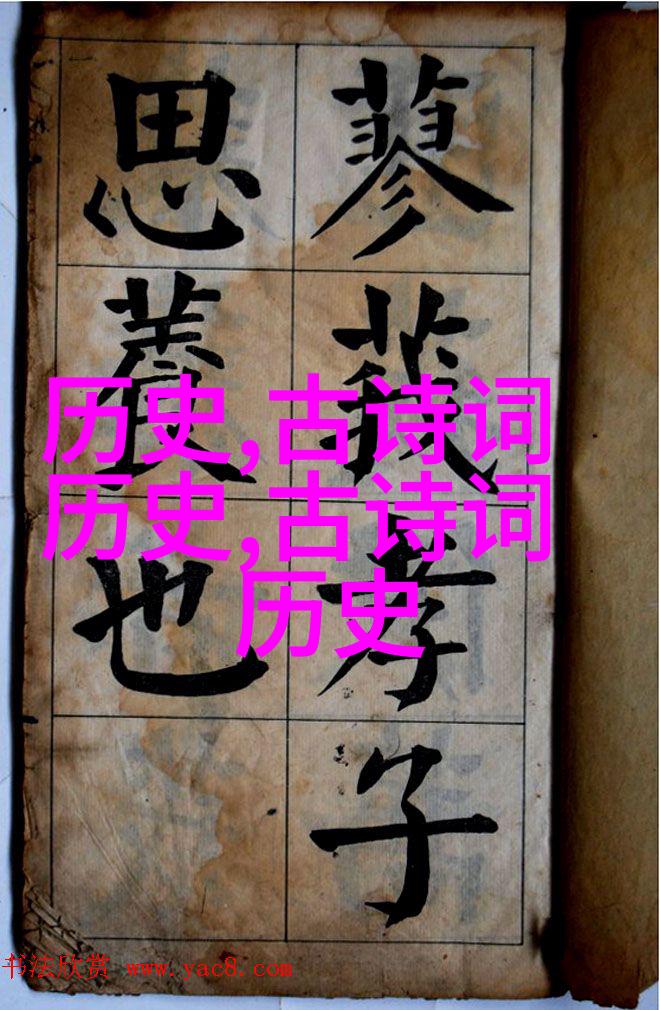 蓼莪孝子
思養也
历史,古诗词
历史,古诗词
历史
书法欣赏 www.yac8.com